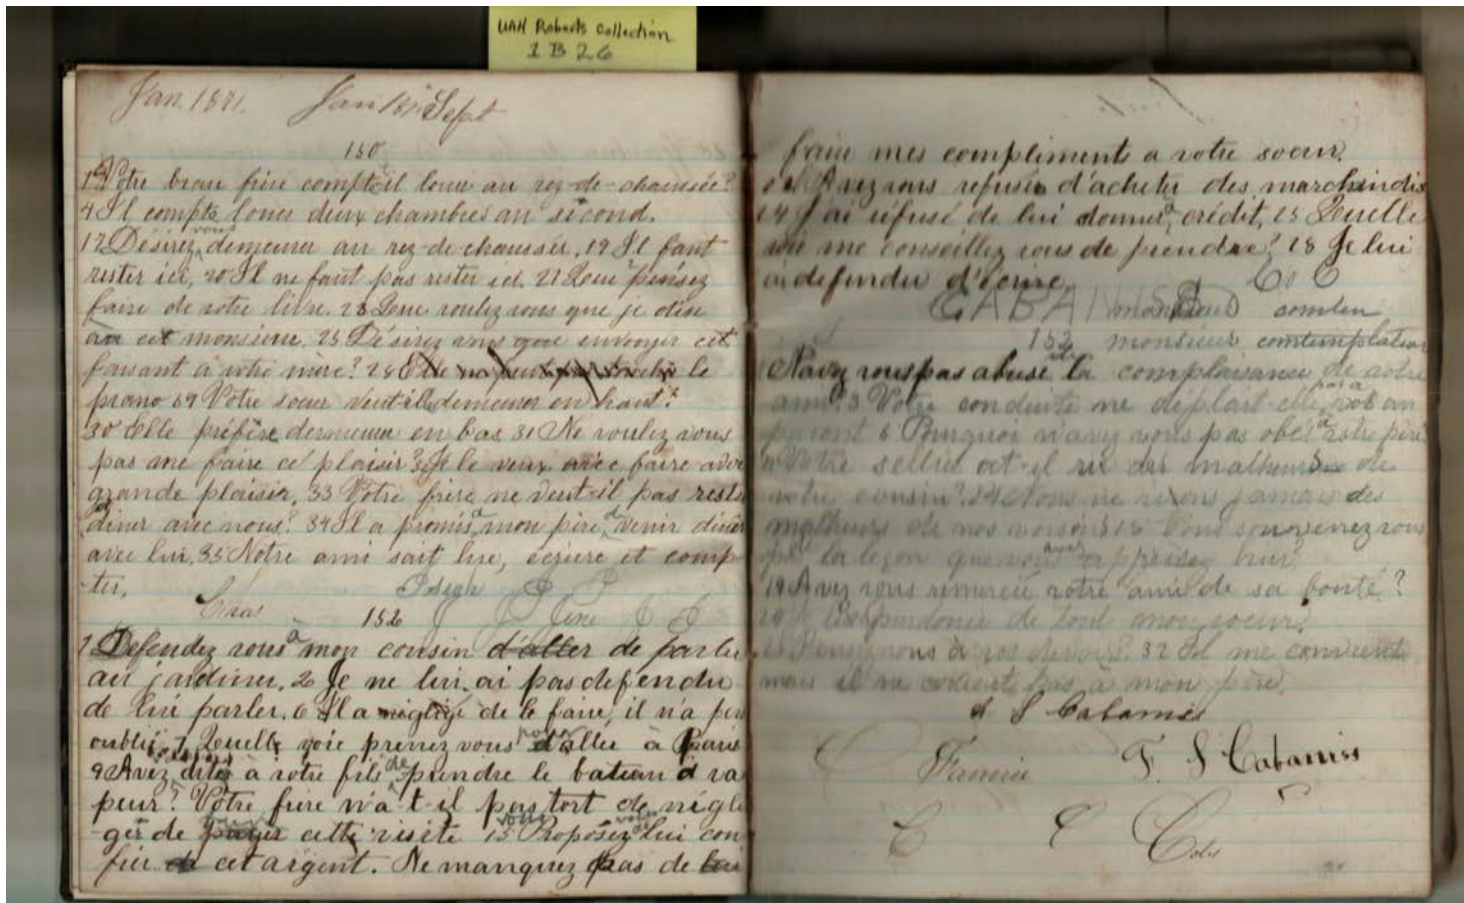 UAH Roberts Collection
1 B 26
Jan. 1871. Jan 187 Sept
150
1 Votre beau frère compte-il louer au rez-de-chaussée?
4 Il compte louer deux chambres au second.
17 Désirez vous demeurer au rez-de-chaussée. 19 Il faut
rester ici, 20 Il ne faut pas rester ici. 21 Que pensez
faire de votre livre. 23 Que voulez vous que je dise
à cet monsieur. 25 Désirez vous que envoyer cet
faisant à votre mère? 28 Elle le
piano 29 Votre soeur veut-elle demeurer en haut?
30 Elle préfère demeurer en bas 31 Ne voulez vous
pas me faire ce plaisir? 32 Je le veux avec faire avec
grande plaisir. 33 Votre frère ne veut-il pas reste
diner avec nous? 34 Il a promis à mon père de venir diner
avec lui. 35 Notre ami sait lire, ecriere et comp
-ter.
152
1 Defendez vous à mon cousin d'aller de parler
au jardinier. 2 Je ne lui ai pas defendu
de lui parler. 6 Il a négligé de le faire, il n'a pas
oublié. 7 Quelle voie prenez vous pour aller à Paris
9 Avez dites à votre fils de prendre le bateau à va
peur? Votre frère n'a-t-il pas tort de négli
-ger de payer cette visite 15 Proposez vous lui con
fier de cet argent. Ne manquez pas de lui
faire mes compliments a votre soeur.
Avez vous refusée d'acheter des marchandis
24 J'ai réfusé de lui donner à crédit, 25 Quelle
voie me conseillez vous de prendre? 28 Je lui
ai defendu d'écrire.
CABANISS monsieur comtem
152 monsieur contemplation
N'avez vous pas abusé de la complaisance de votre
ami? 3 Votre conduite ne déplait-elle pas à vos
parent 6 Pourquoi n'avez vous pas obéi à votre père
Votre sellier at-il ri des malheurs de
votre cousin? 14 Nous ne rions jamais des
malheurs de nos voisins 15 Vous souvenez vous
de la leçon que vous avez apprise hier?
19 Avez vous remercié votre ami de sa bonté?
20 Je l'ai pardonné de tout mon coeur.
Pensez vous à vos devoirs? 32 Il me convient
mais il ne convient pas à mon père.
S Cabaniss
Fannie F. S Cabaniss
C C